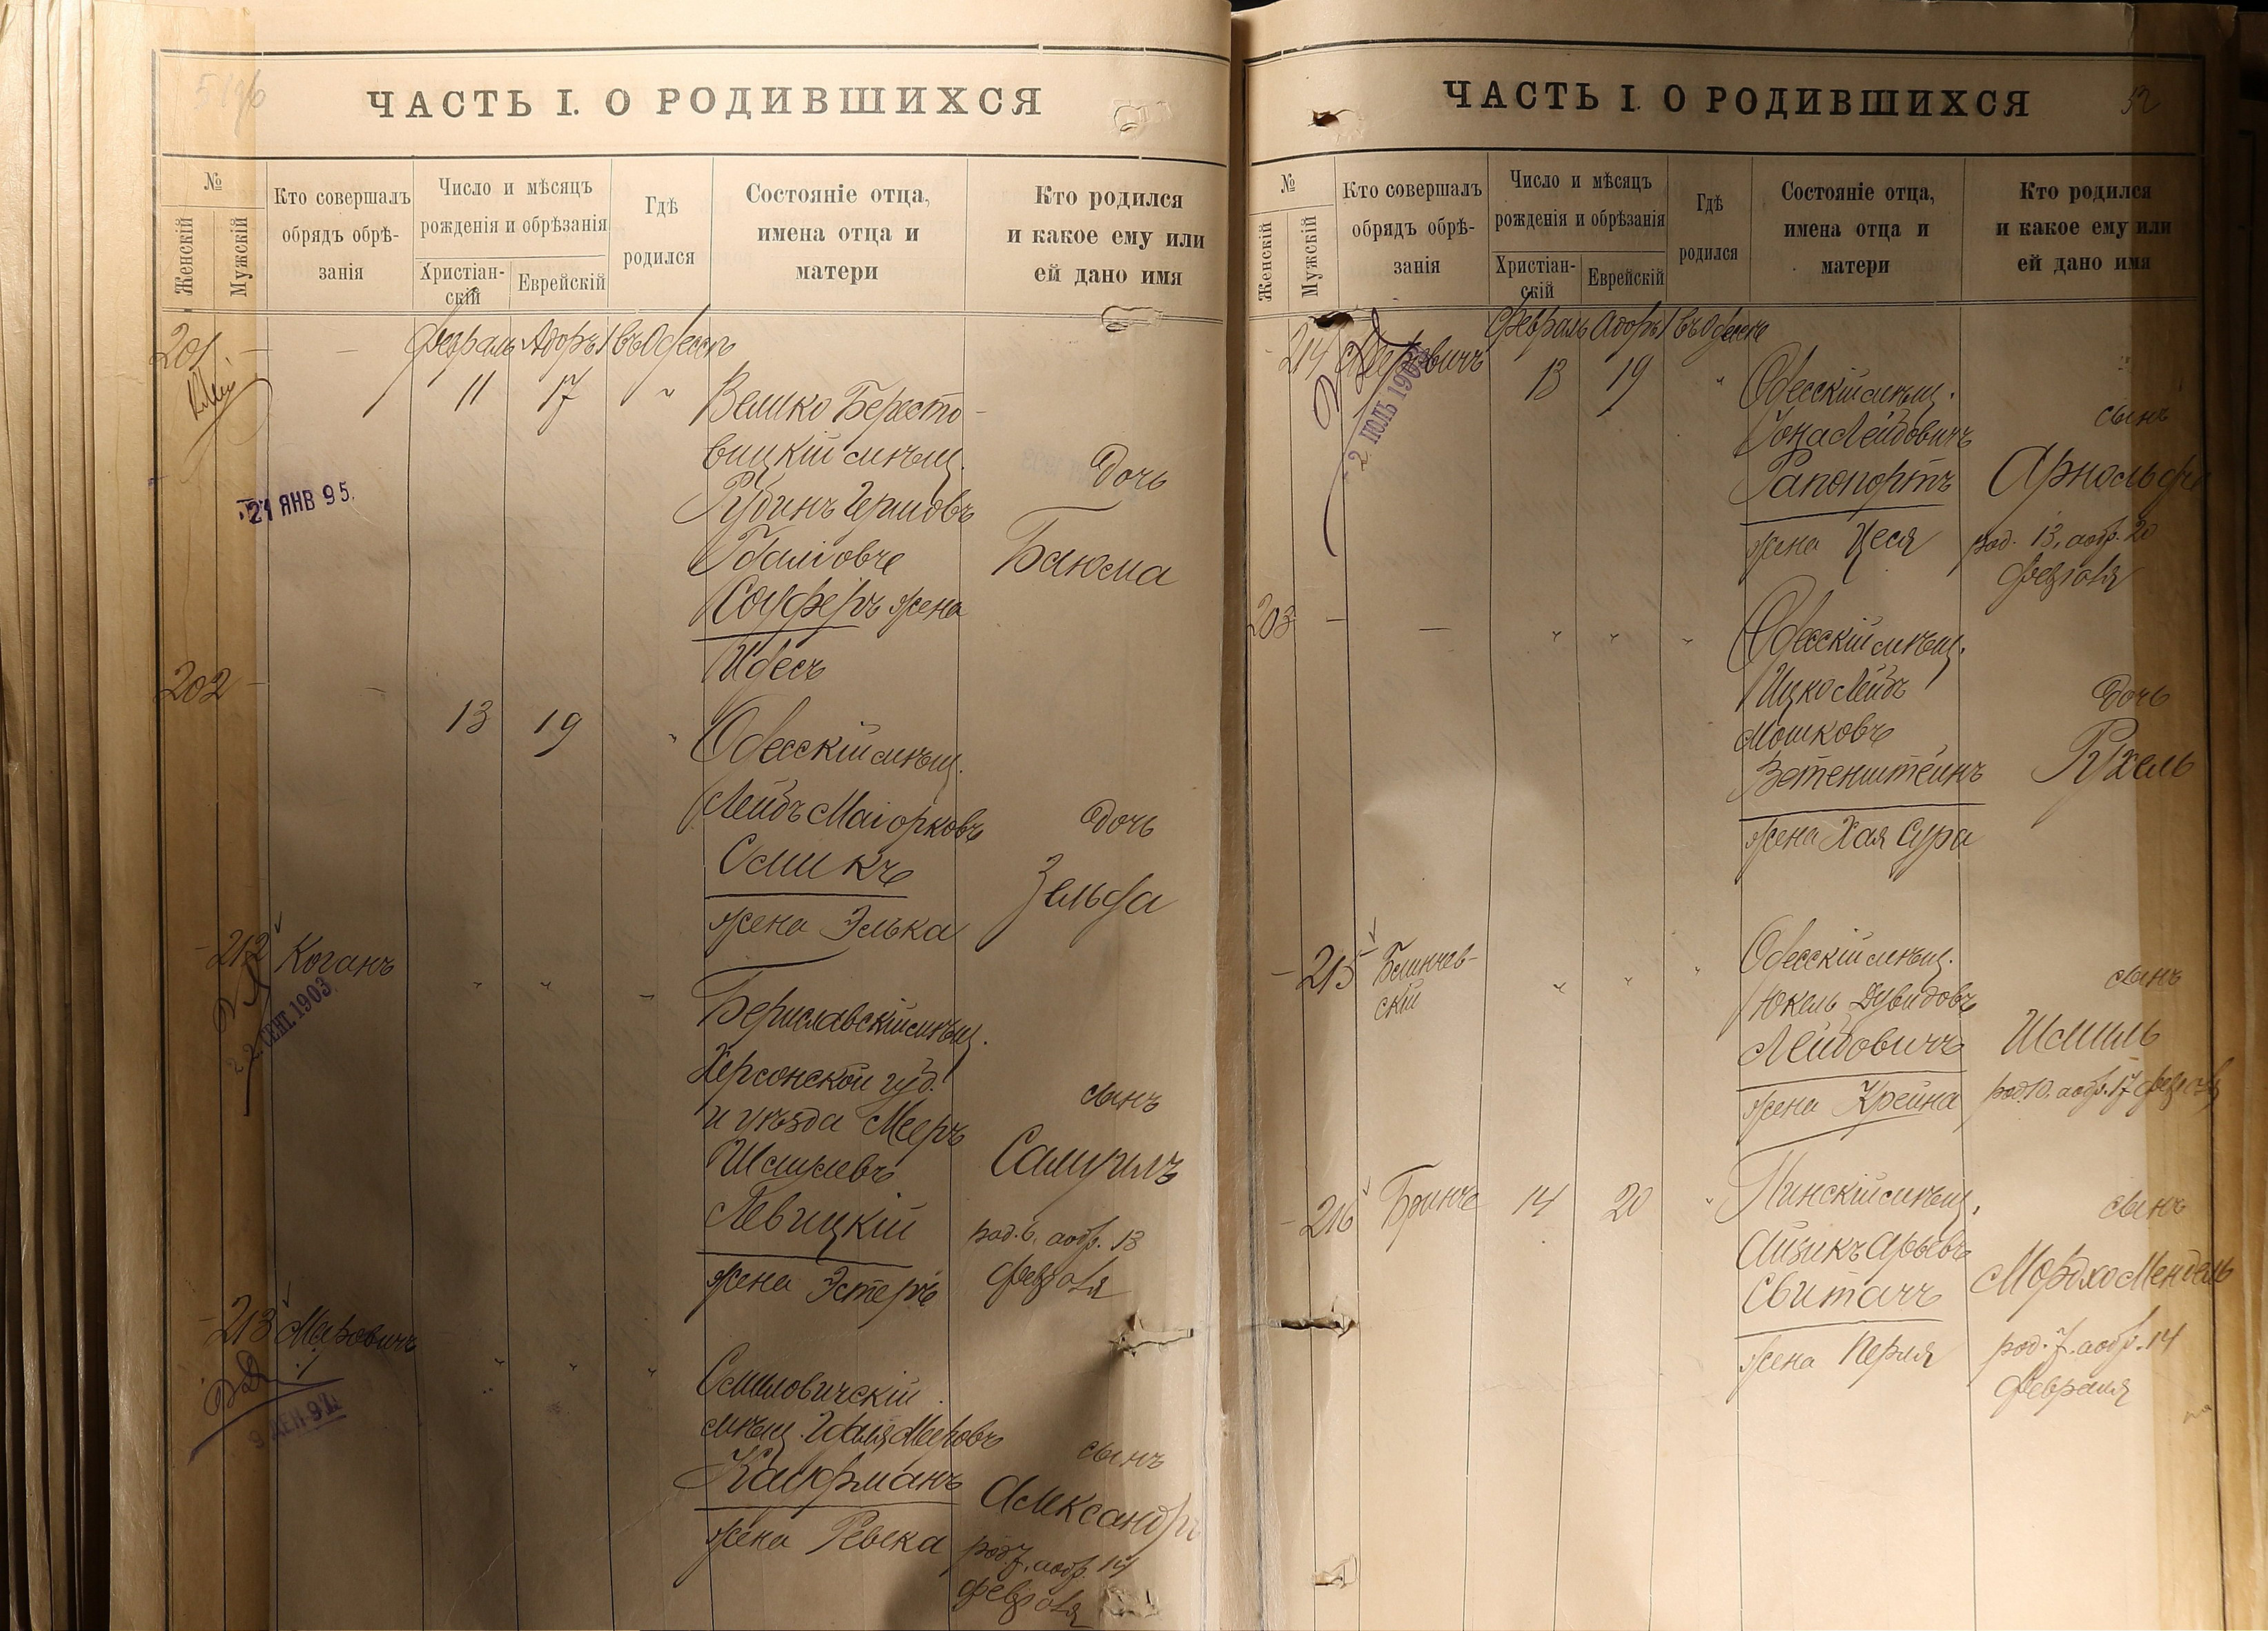 ЧАСТЬ I. О РОДИВШИХСЯ
№
Женскій
Мужскій
Кто совершалъ
обрядъ обрѣ-
занія
Число и мѣсяцъ
рожденія и обрѣзанія
Христіан-
скій
Еврейскій
Гдѣ
родился
Состояніе отца,
имена отца и
матери
Кто родился
и какое ему или
ей дано имя
201
Февраль Адоръ I въ Одессѣ
11 17
Велико Бересто-
вицкій мѣщ.
Рубинъ Гершовъ
Соуферъ жена
Идесъ
дочь
Баюма
21 ЯНВ 95.
202
13 19
Одесскій мѣщ.
Лейбъ Маiорковъ
Смикъ
жена Элька
дочь
Зельфа
212 Коганъ
22 СЕНТ. 1903.
Бериславскій мѣщ.
Херсонской губ.
и уѣзда Мееръ
Шмулевъ
Левицкій
жена Эстеръ
сынъ
Самуилъ
род. 6, аобр. 13
февраля
213 Меровичъ
Смиловичскій
мѣщ. Мееровъ
Кауфманъ
жена Ревека
сынъ
Александръ
род. 7, аобр. 14
февраля
ЧАСТЬ I. О РОДИВШИХСЯ
52
№
Женскій
Мужскій
Кто совершалъ
обрядъ обрѣ-
занія
Число и мѣсяцъ
рожденія и обрѣзанія
Христіан-
скій
Еврейскій
Гдѣ
родился
Состояніе отца,
имена отца и
матери
Кто родился
и какое ему или
ей дано имя
214 Меровичъ
Февраль Адоръ I въ Одессѣ
13 19
Одесскій мѣщ.
Іона Лейбовичъ
Рапопортъ
жена Цеся
сынъ
Арнольфъ
род. 13, аобр. 20
февраля
203
Одесскій мѣщ.
Ицко Лейбъ
Мошковъ
Зетенштейнъ
жена Хая Сура
дочь
Рухель
215 Блинчев-
скій
Одесскій мѣщ.
Юкель Дувидовъ
Лейбовичъ
жена Крейна
сынъ
Шмиль
род. 10, аобр. 17 февраля
216 Бринъ
14 20
Пинскій мѣщ.
Айзикъ Арьевъ
Свитачъ
жена Перля
сынъ
Мордхо Мендель
род. 7. аобр. 14
февраля